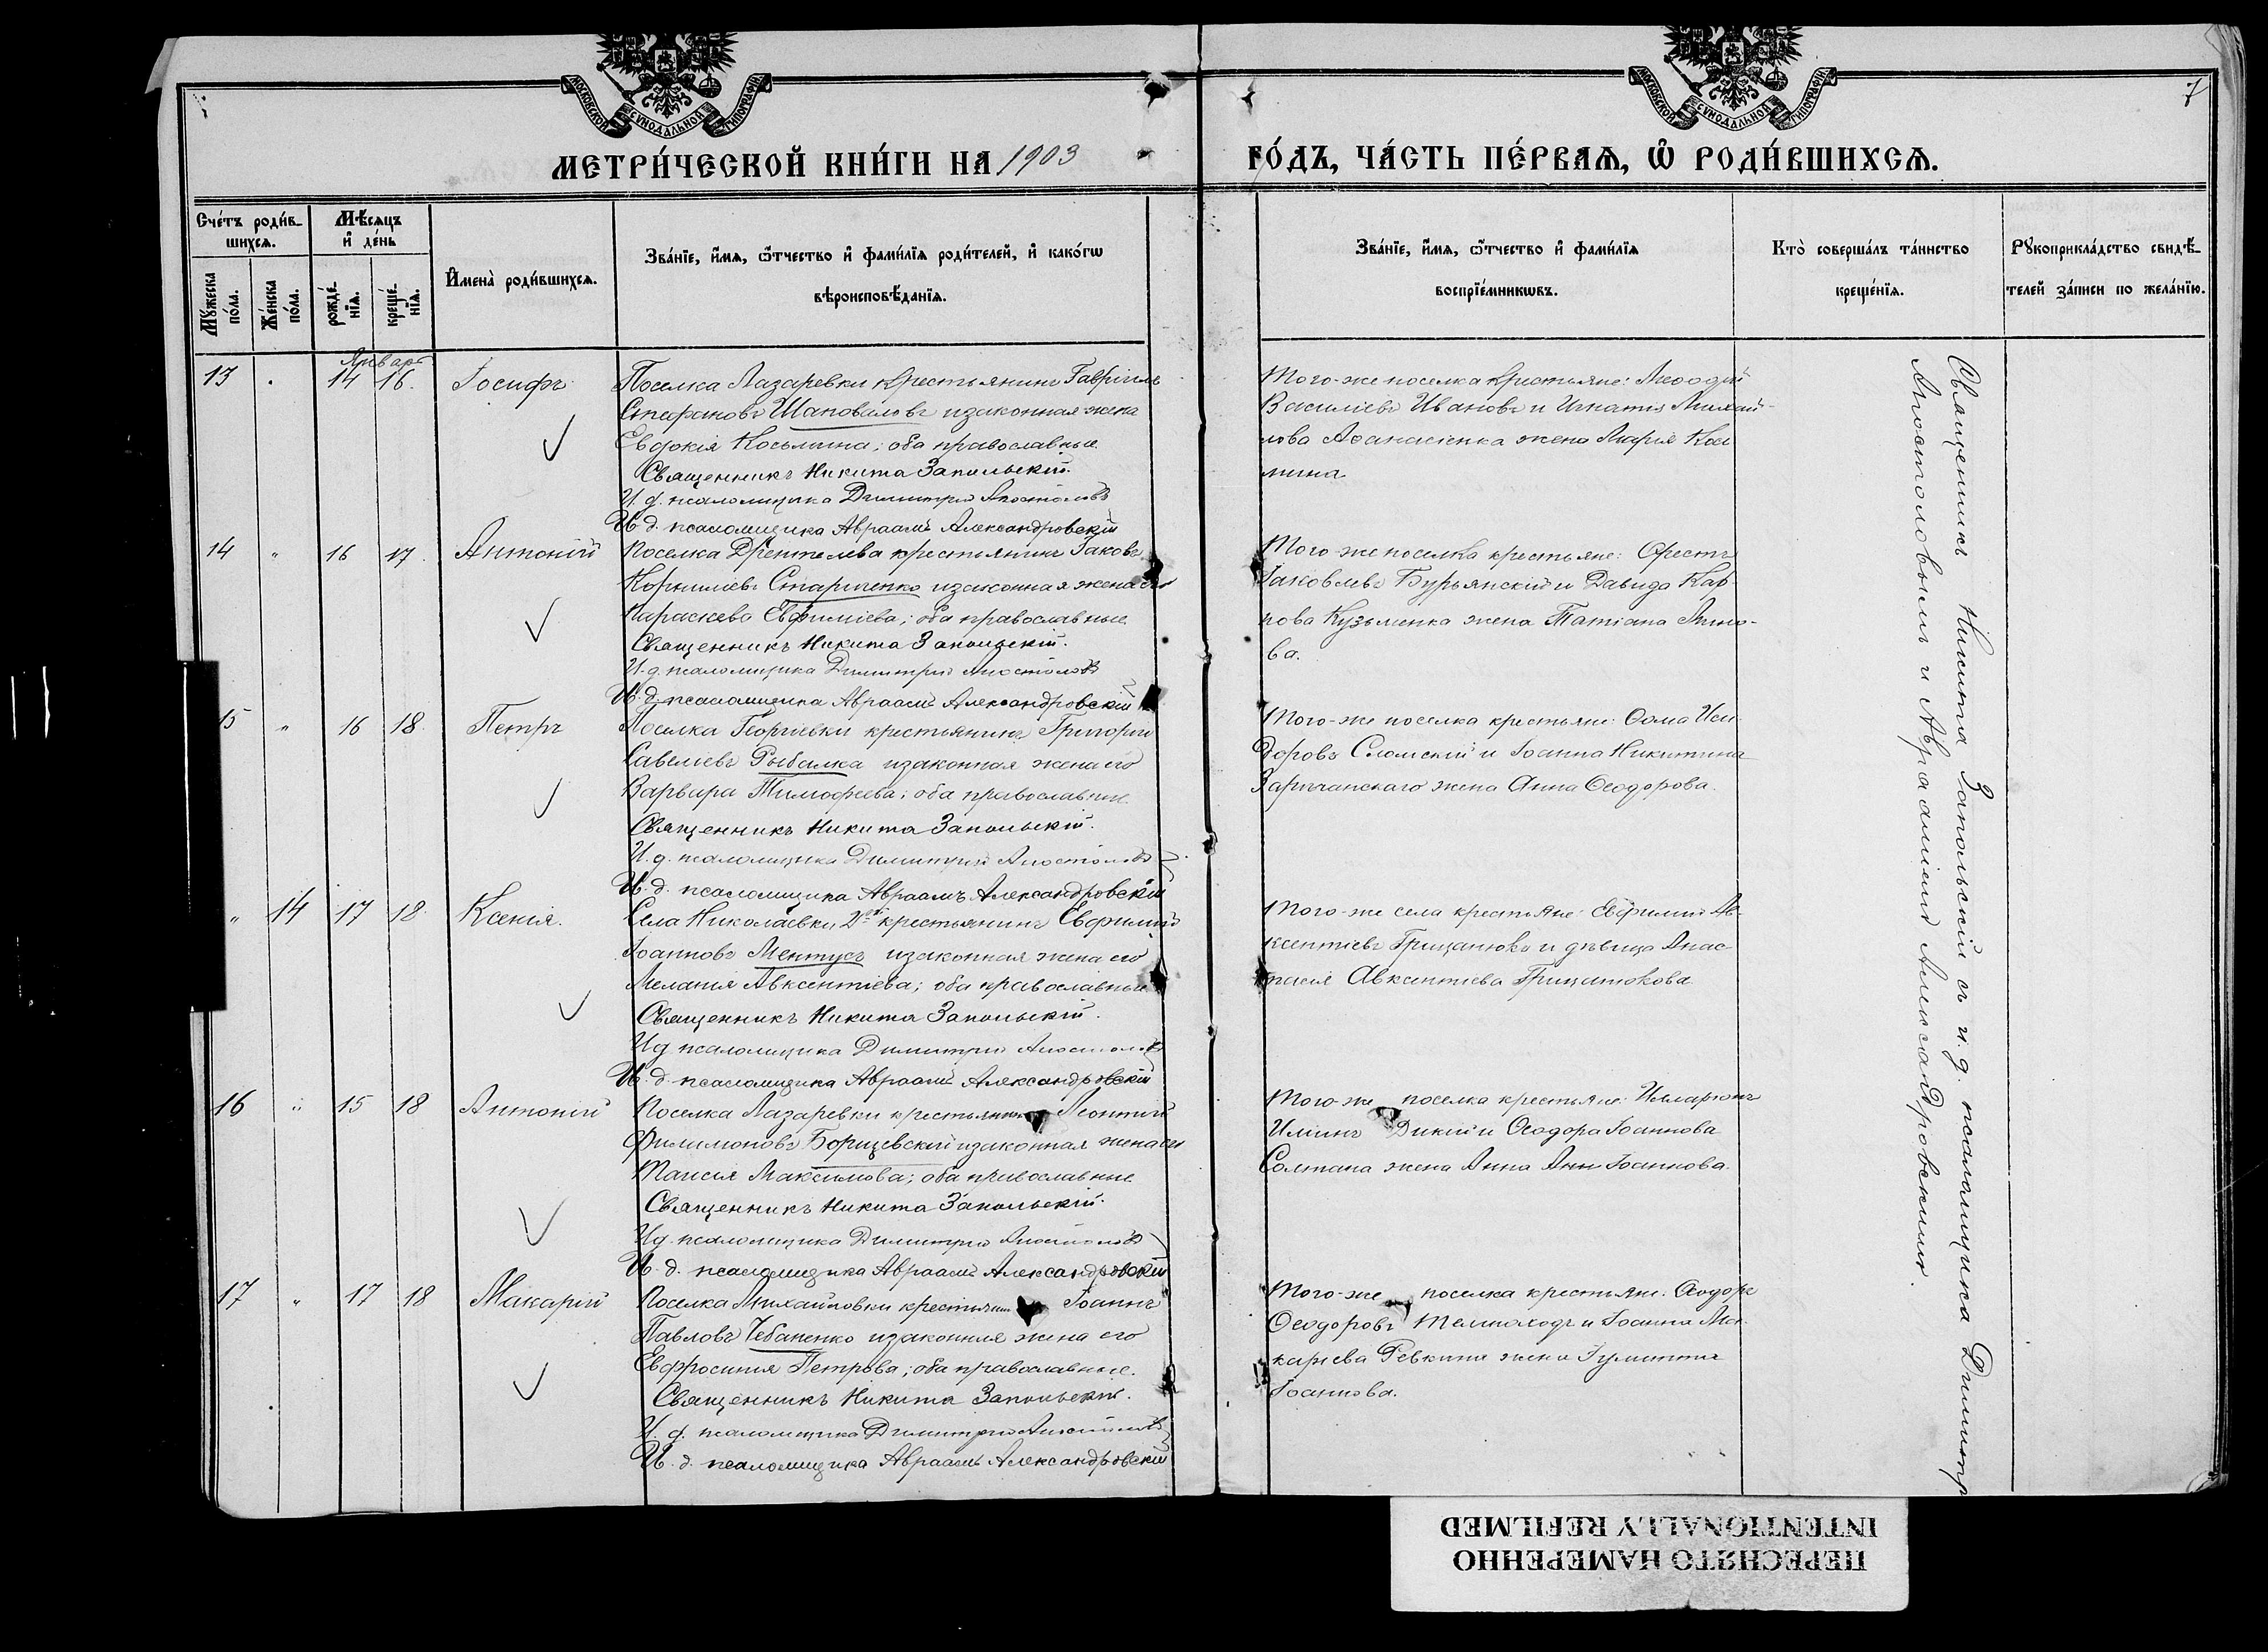 МОСКОВСКОЙ СѴНОДАЛЬНОЙ ТИПОГРАФІИ
МОСКОВСКОЙ СѴНОДАЛЬНОЙ ТИПОГРАФІИ
7
МЕТРИ́ЧЕСКОЙ КНИ́ГИ НА 1903
ГО́ДЪ, ЧА́СТЬ ПЕ́РВАѦ, Ѡ҆ РОДИ́ВШИХСѦ.
Сче́тъ роди́в-
шихсѧ.
Мѣ́сѧцъ
и҆ де́нь
Мꙋ́жеска
по́ла.
Же́нска
по́ла.
рожде́-
нїѧ.
креще́-
нїѧ.
И҆мена̀ роди́вшихсѧ.
Зва́нїе, и҆́мѧ, ѻ҆́тчество и҆ фами́лїѧ роди́телей, и҆ како́гѡ
вѣроисповѣ́данїѧ.
Зва́нїе, и҆́мѧ, ѻ҆́тчество и҆ фами́лїѧ
воспрїе́мникѡвъ.
Кто̀ соверша́лъ та́инство
креще́нїѧ.
Рꙋкоприкла́дство свидѣ́-
телей за́писи по жела́нїю.
Январь
13 14 16. Іосифъ
Поселка Лазаревки крестьянинъ Гавріилъ
Стефановъ Шаповаловъ и законная жена
Евдокія Косьмина; оба православные.
Священникъ Никита Запольскій.
И. д. псаломщика Димитрій Апостоловъ
И. д. псаломщика Авраамъ Александровскій
Того-же поселка крестьяне: Меѳодій
Василіевъ Ивановъ и Игнатія Михай-
лова Аѳанасіенка жена Марія Кось
мина
14 " 16 17. Антоній
Поселка Дрентелева крестьянинъ Іаковъ
Корниліевъ Стариченко и законная жена его
Параскева Евфиміева; оба православные
Священникъ Никита Запольскій.
И. д. псаломщика Димитрій Апостоловъ
И. д. псаломщика Авраамъ Александровскій
Того-же поселка крестьяне: Орестъ
Іаковлевъ Бурьянскій и Давида Кар-
пова Кузьменка жена Татіана
ва.
15 " 16 18. Петръ
Поселка Георгіевки крестьянинъ Григорій
Савеліевъ Рыбалка и законная жена его
Варвара Тимоѳеева; оба православные.
Священникъ Никита Запольскій.
И. д. псаломщика Димитрій Апостоловъ
И. д. псаломщика Авраамъ Александровскій
Того-же поселка крестьяне: Ѳома Иси-
доровъ Сломскій и Іоанна Никитина
Заричанскаго жена Анна Ѳеодорова.
" 14 17 18. Ксенія.
Села Николаевки 2й крестьянинъ Евфимій
Іоанновъ Ментусъ и законная жена его
Меланія Авксентіева; оба православные
Священникъ Никита Запольскій.
И д. псаломщика Димитрій Апостоловъ
И. д. псаломщика Авраамъ Александровскій
Того-же села крестьяне: Евфимій Ав-
ксентіевъ Грицанюкъ и дѣвица Анас-
тасія Авксентіева Грицанюкова
16 " 15 18 Антоній
Поселка Лазаревки крестьянинъ Леонтій
Филимоновъ Борщевскій и законная жена его
Таисія Максимова; оба православные
Священникъ Никита Запольскій.
И д. псаломщика Димитрій Апостоловъ
И. д. псаломщика Авраамъ Александровскій
Того-же поселка крестьяне: Илларіонъ
Иліинъ Дикій и Ѳеодора Іоаннова
Солтана жена Анна Анн Іоаннова.
17 " 17 18 Макарій
Поселка Михайловки крестьянинъ Іоаннъ
Павловъ Чебаненко и законная жена его
Евфросинія Петрова; оба православные.
Священникъ Никита Запольскій.
И. д. псаломщика Димитрій Апостоловъ
И. д. псаломщика Авраамъ Александровскій
Того-же поселка крестьяне: Ѳеодоръ
Ѳеодоровъ и Іоанна Ма-
каріева жена
Іоаннова.
Священникъ Никита Запольскій съ и. д. псаломщика Димитр
Апостоловымъ и Авраамомъ Александровскимъ.
ПЕРЕСНЯТО НАМЕРЕННО
INTENTIONALLY REFILMED